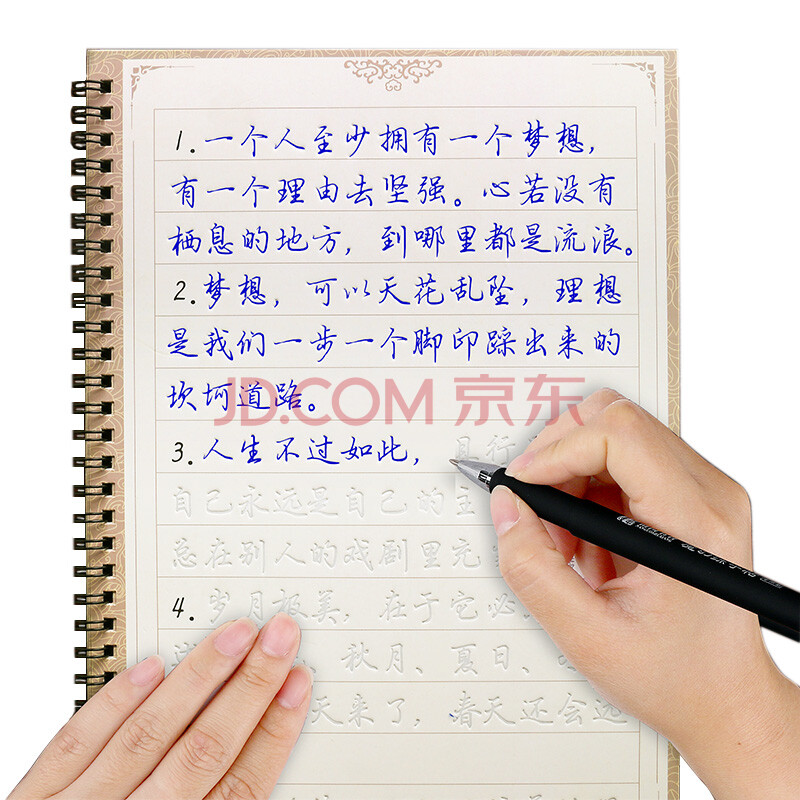 1.一个人至少拥有一个梦想,
有一个理由去坚强。心若没有
栖息的地方,到哪里都是流浪。
2.梦想,可以天花乱坠,理想
是我们一步一个脚印踩出来的
坎坷道路。
JD.COM 京东
3.人生不过如此,且行
自己永远是自己的主
总在别人的戏剧里充
4.岁月极美,在于它必
秋月、夏日、
天来了,春天还会远